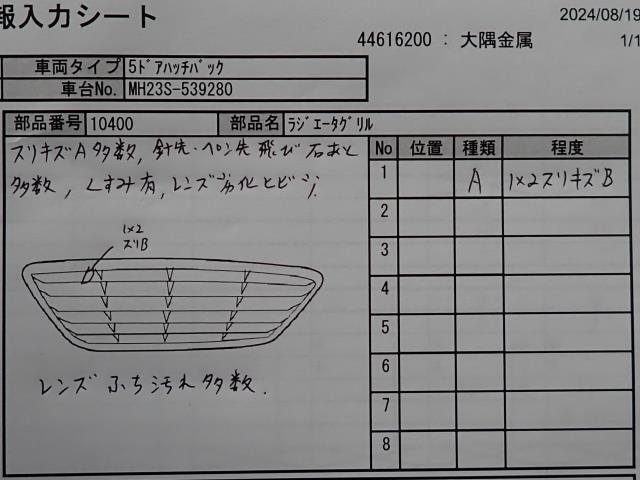 報入力シート
2024/08/19
44616200 : 大隅金属
1/1
車両タイプ 5ﾄﾞｱﾊｯﾁﾊﾞｯｸ
車台No. MH23S-539280
部品番号 10400 部品名 ﾗｼﾞｴｰﾀｸﾞﾘﾙ
スリキズA多数, 針先・ペン先飛び石あと
多数, くすみ有, レンズ劣化とビジ
No 位置 種類 程度
1 A 1×2スリキズB
2
3
4
5
6
7
8
1×2
ズリB
レンズふち汚れ多数.